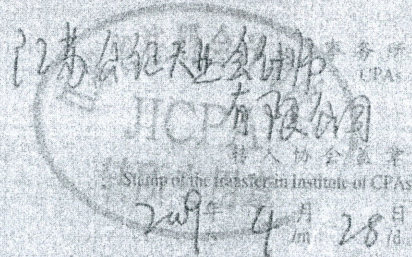 江苏公证天业会计师 事务所
CPAs
有限公司
JICPA
转入协会盖章
Stamp of the transfer-in Institute of CPAs
2009年 4月 28日
/m /d